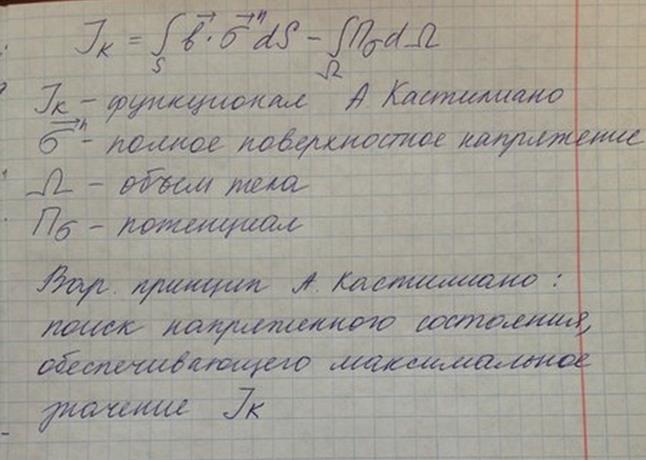 Jк = ∫S b⃗ · σ⃗ⁿ dS − ∫Ω Пσ dΩ
Jк – функционал А. Кастилиано
σ⃗ⁿ – полное поверхностное напряжение
Ω – объем тела
Пσ – потенциал
Вар. принцип А. Кастилиано:
поиск напряженного состояния,
обеспечивающего максимальное
значение Jк